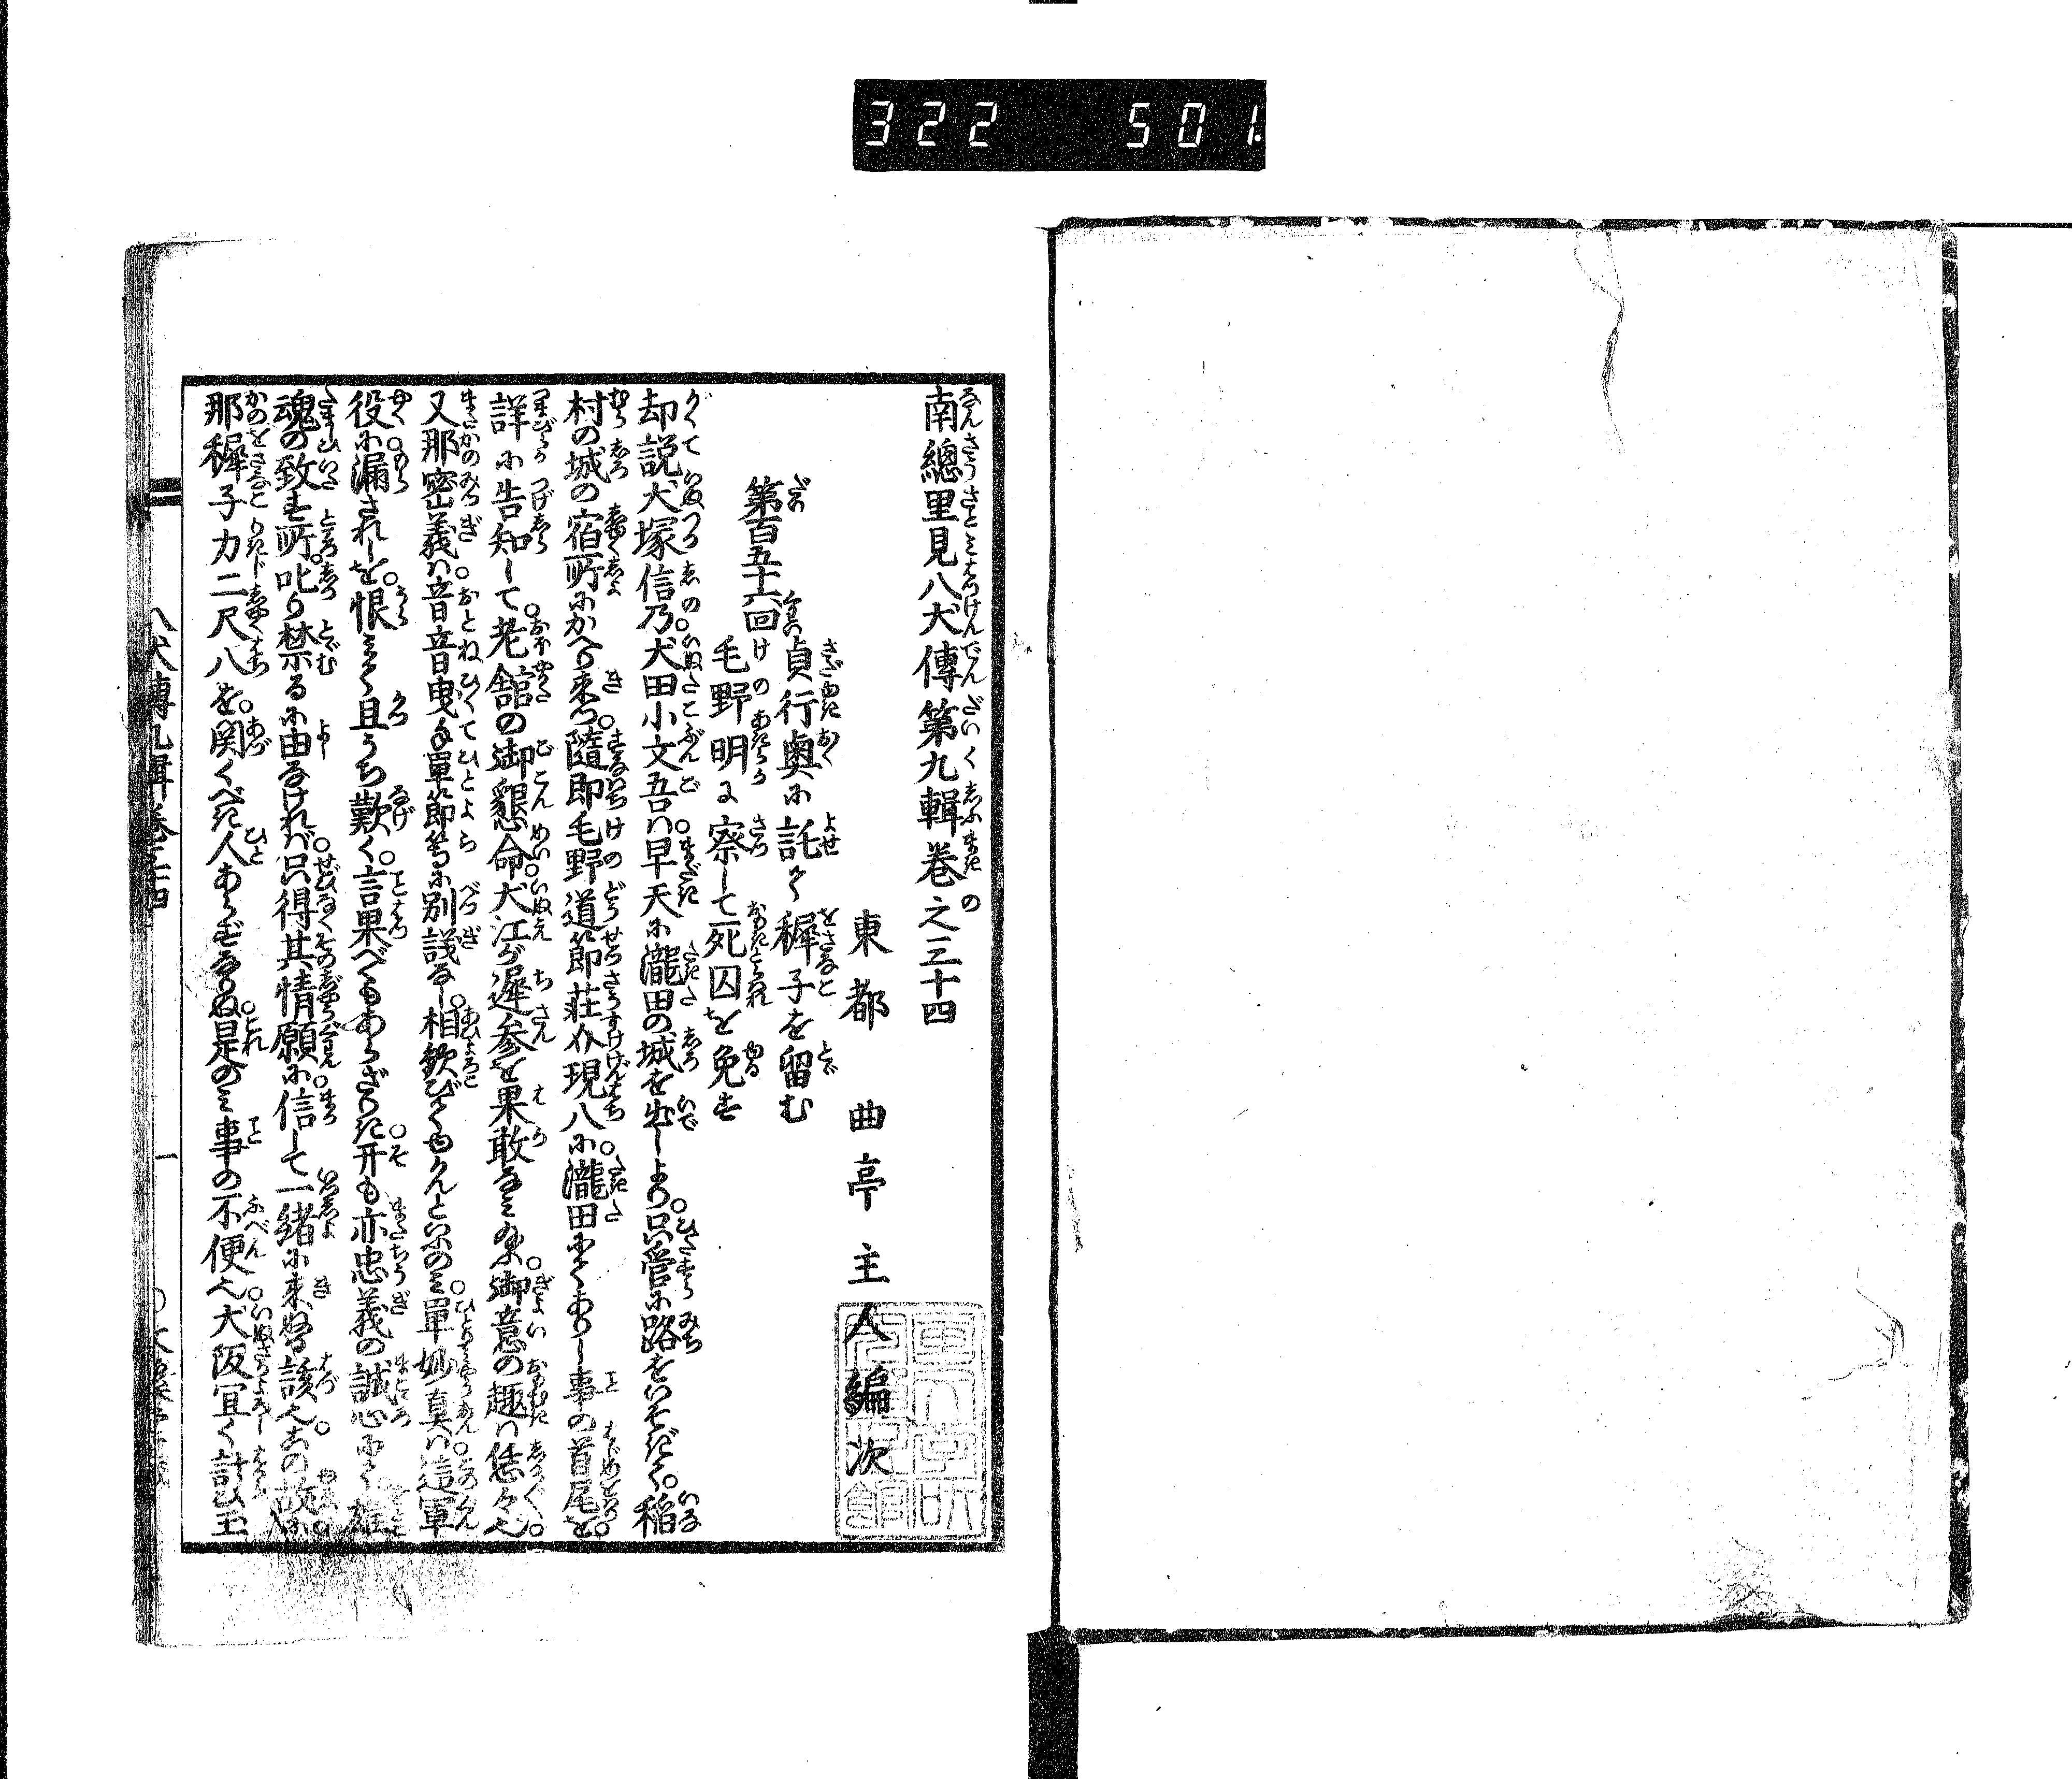 322 501
南總里見八犬傳第九輯卷之三十四
東都 曲亭主人編次
第百五十六回
貞行奥に託て穉子を留む
毛野明に察して死囚を免す
却説犬塚信乃犬田小文吾ハ早天に瀧田の城を出しより只管に路をいそぎて稲
村の城の宿所にかへり来つ隨即毛野道節荘介現八に瀧田にてありし事の首尾を
詳に告知して老舘の御懇命犬江が遲参を果敢なみ給ふ御意の趣ハ恁々也
又那密義ハ音音曳手單節等に別議なし相歓びてゆかんといふのミ單妙真ハ這軍
役に漏されしを恨ミて且うち歎く言果べくもあらざりき开も亦忠義の誠心にて雄
魂の致す所叱り禁るに由なけれバ只得其情願に信して一緒に来ぬる該也この故に
那穉子力二尺八を関くべき人あらずなりぬ是のミ事の不便也犬阪冝く計ひ玉
八犬傳九輯卷三十四
一